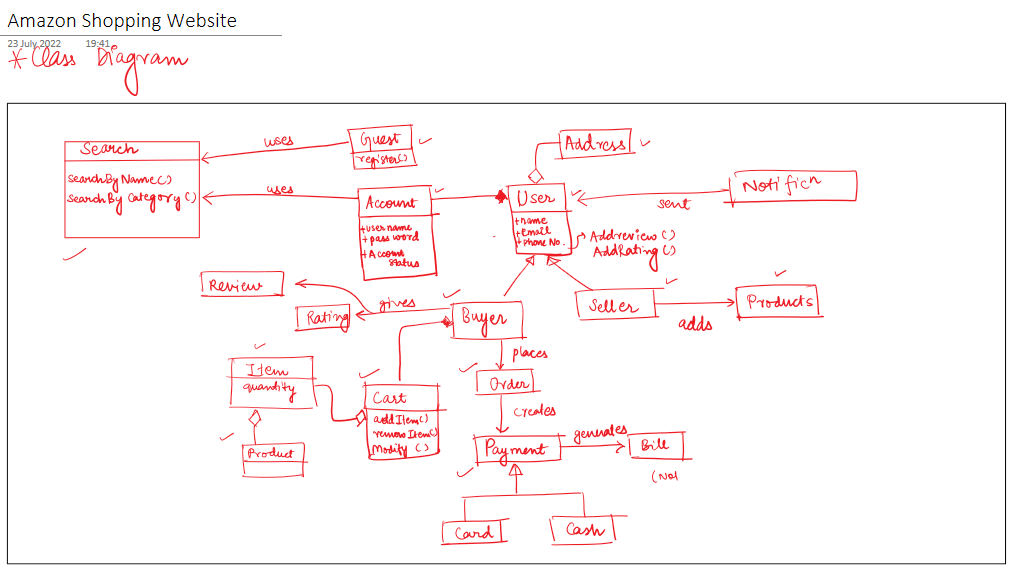 Amazon Shopping Website
23 July 2022 19:41
* Class Diagram
Search
searchByName()
searchBy Category()
uses
uses
Guest
register()
Account
+username
+password
+Account
status
User
+name
+Email
+Phone No.
Addreview()
AddRating()
Address
Notificn
sent
Review
Rating
gives
Buyer
Seller
adds
Products
places
Item
quantity
Product
Cart
addItem()
removItem()
Modify ()
Order
creates
Payment
generates
Bill
(Not
Card
Cash